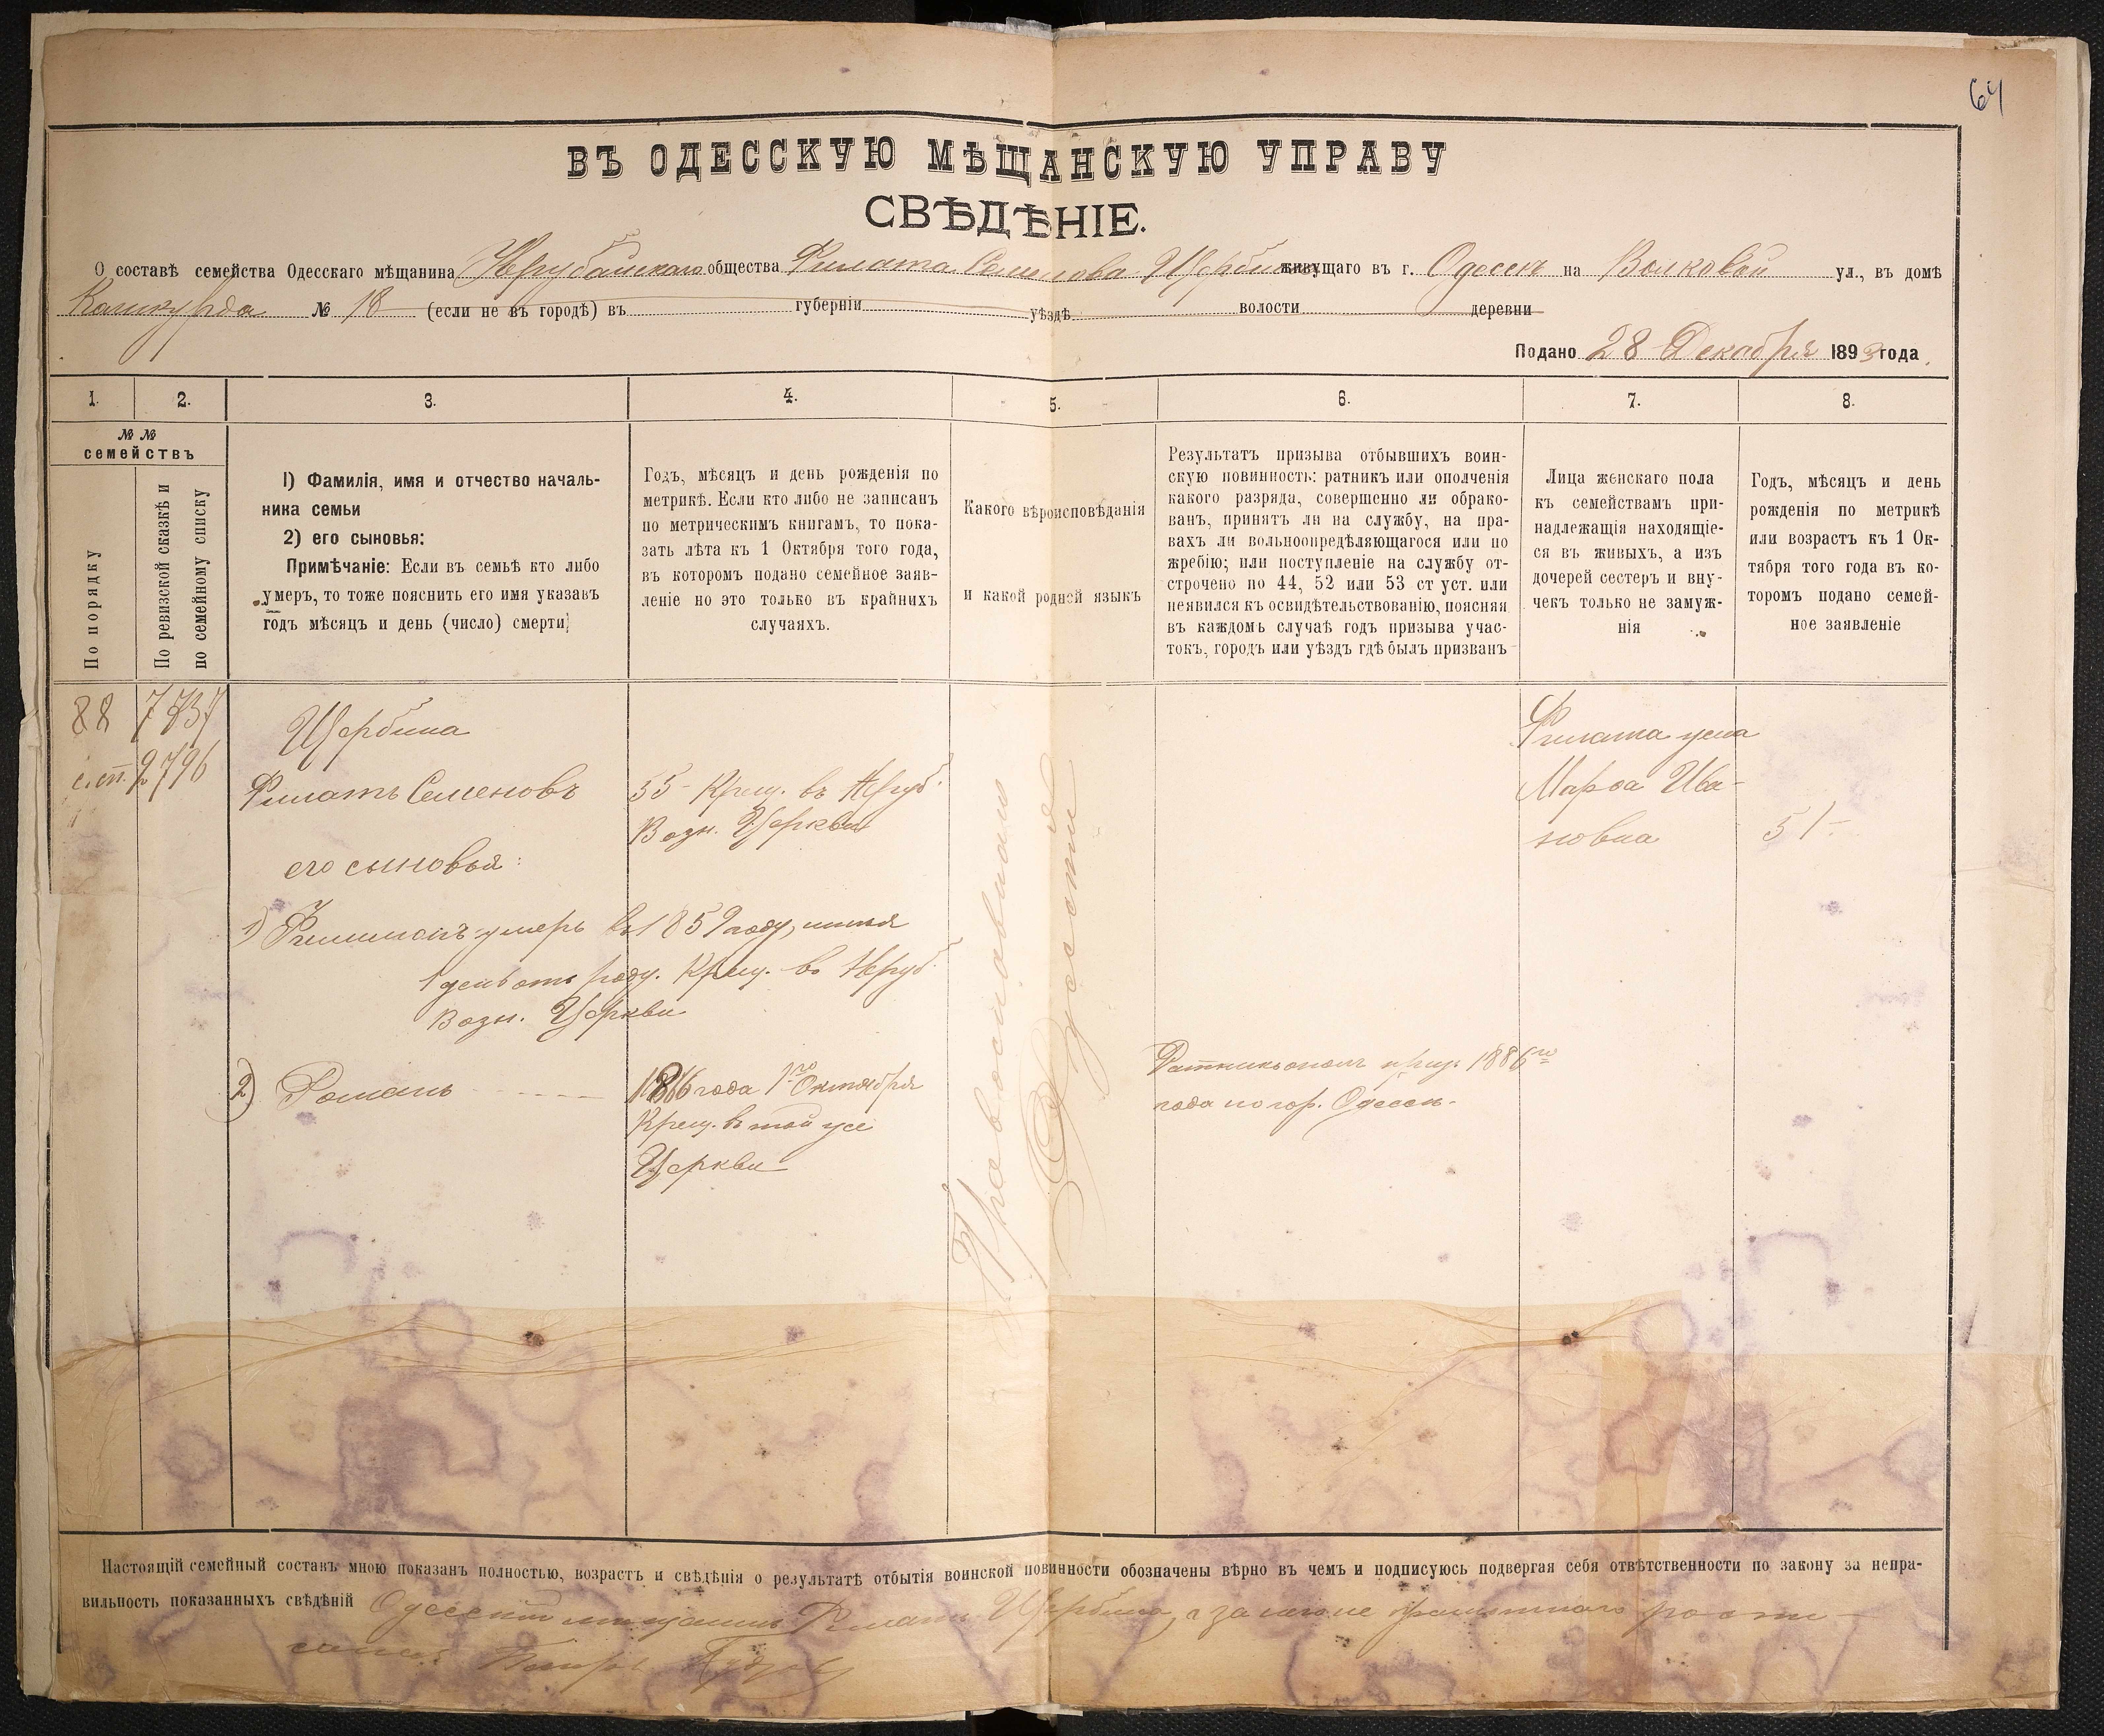 64
ВЪ ОДЕССКУЮ МѢЩАНСКУЮ УПРАВУ
СВѢДѢНІЕ.
О составѣ семейства Одесскаго мѣщанина Нерубайскаго общества Филата Семенова Щербины живущаго въ г. Одессѣ на Волковой ул., въ домѣ
№ 18 (если не въ городѣ) въ губерніи уѣздѣ волости деревни
Подано 28 Декабря 1893 года
1. 2. 3. 4. 5. 6. 7. 8.
№ №
семействъ
По порядку
По ревизской сказкѣ и
по семейному списку
1) Фамилія, имя и отчество началь-
ника семьи
2) его сыновья:
Примѣчаніе: Если въ семьѣ кто либо
умеръ, то тоже пояснить его имя указавъ
годъ мѣсяцъ и день (число) смерти;
Годъ, мѣсяцъ и день рожденія по
метрикѣ. Если кто либо не записанъ
по метрическимъ книгамъ, то пока-
зать лѣта къ 1 Октября того года,
въ которомъ подано семейное заяв-
леніе но это только въ крайнихъ
случаяхъ.
Какого вѣроисповѣданія
и какой родной языкъ
Результатъ призыва отбывшихъ воин-
скую повинность: ратникъ или ополченія
какого разряда, совершенно ли обрако-
ванъ, принятъ ли на службу, на пра-
вахъ ли вольноопредѣляющагося или по
жребію; или поступленіе на службу от-
строчено по 44, 52 или 53 ст уст. или
неявился къ освидѣтельствованію, поясняя
въ каждомъ случаѣ годъ призыва учас-
токъ, городъ или уѣздъ гдѣ былъ призванъ
Лица женскаго пола
къ семействамъ при-
надлежащія находящіе-
ся въ живыхъ, а изъ
дочерей сестеръ и вну-
чекъ только не замуж-
нія
Годъ, мѣсяцъ и день
рожденія по метрикѣ
или возрастъ къ 1 Ок-
тября того года въ ко-
торомъ подано семей-
ное заявленіе
88
с. сп. 2796
Щербина
Филатъ Семеновъ
55 - Крещ. въ Неруб.
Возн. Церкви
его сыновья:
1) Филимонъ умеръ въ 1859 году, имѣя
1 день отъ роду. Крещ. въ Неруб.
Возн. Церкви
2) Романъ
1866 года 1го Октября
Крещ. въ той же
Церкви
Православнаго
Русскій
Ратникъ ополч. приз. 1886го
года по гор. Одессѣ.
Филата жена
Марѳа Ива-
новна
51 -
Настоящій семейный составъ мною показанъ полностью, возрастъ и свѣдѣнія о результатѣ отбытія воинской повинности обозначены вѣрно въ чемъ и подписуюсь подвергая себя отвѣтственности по закону за непра-
вильность показанныхъ свѣдѣній Одесскій мѣщанинъ Филатъ Щербина, а за него не грамотнаго роспи-